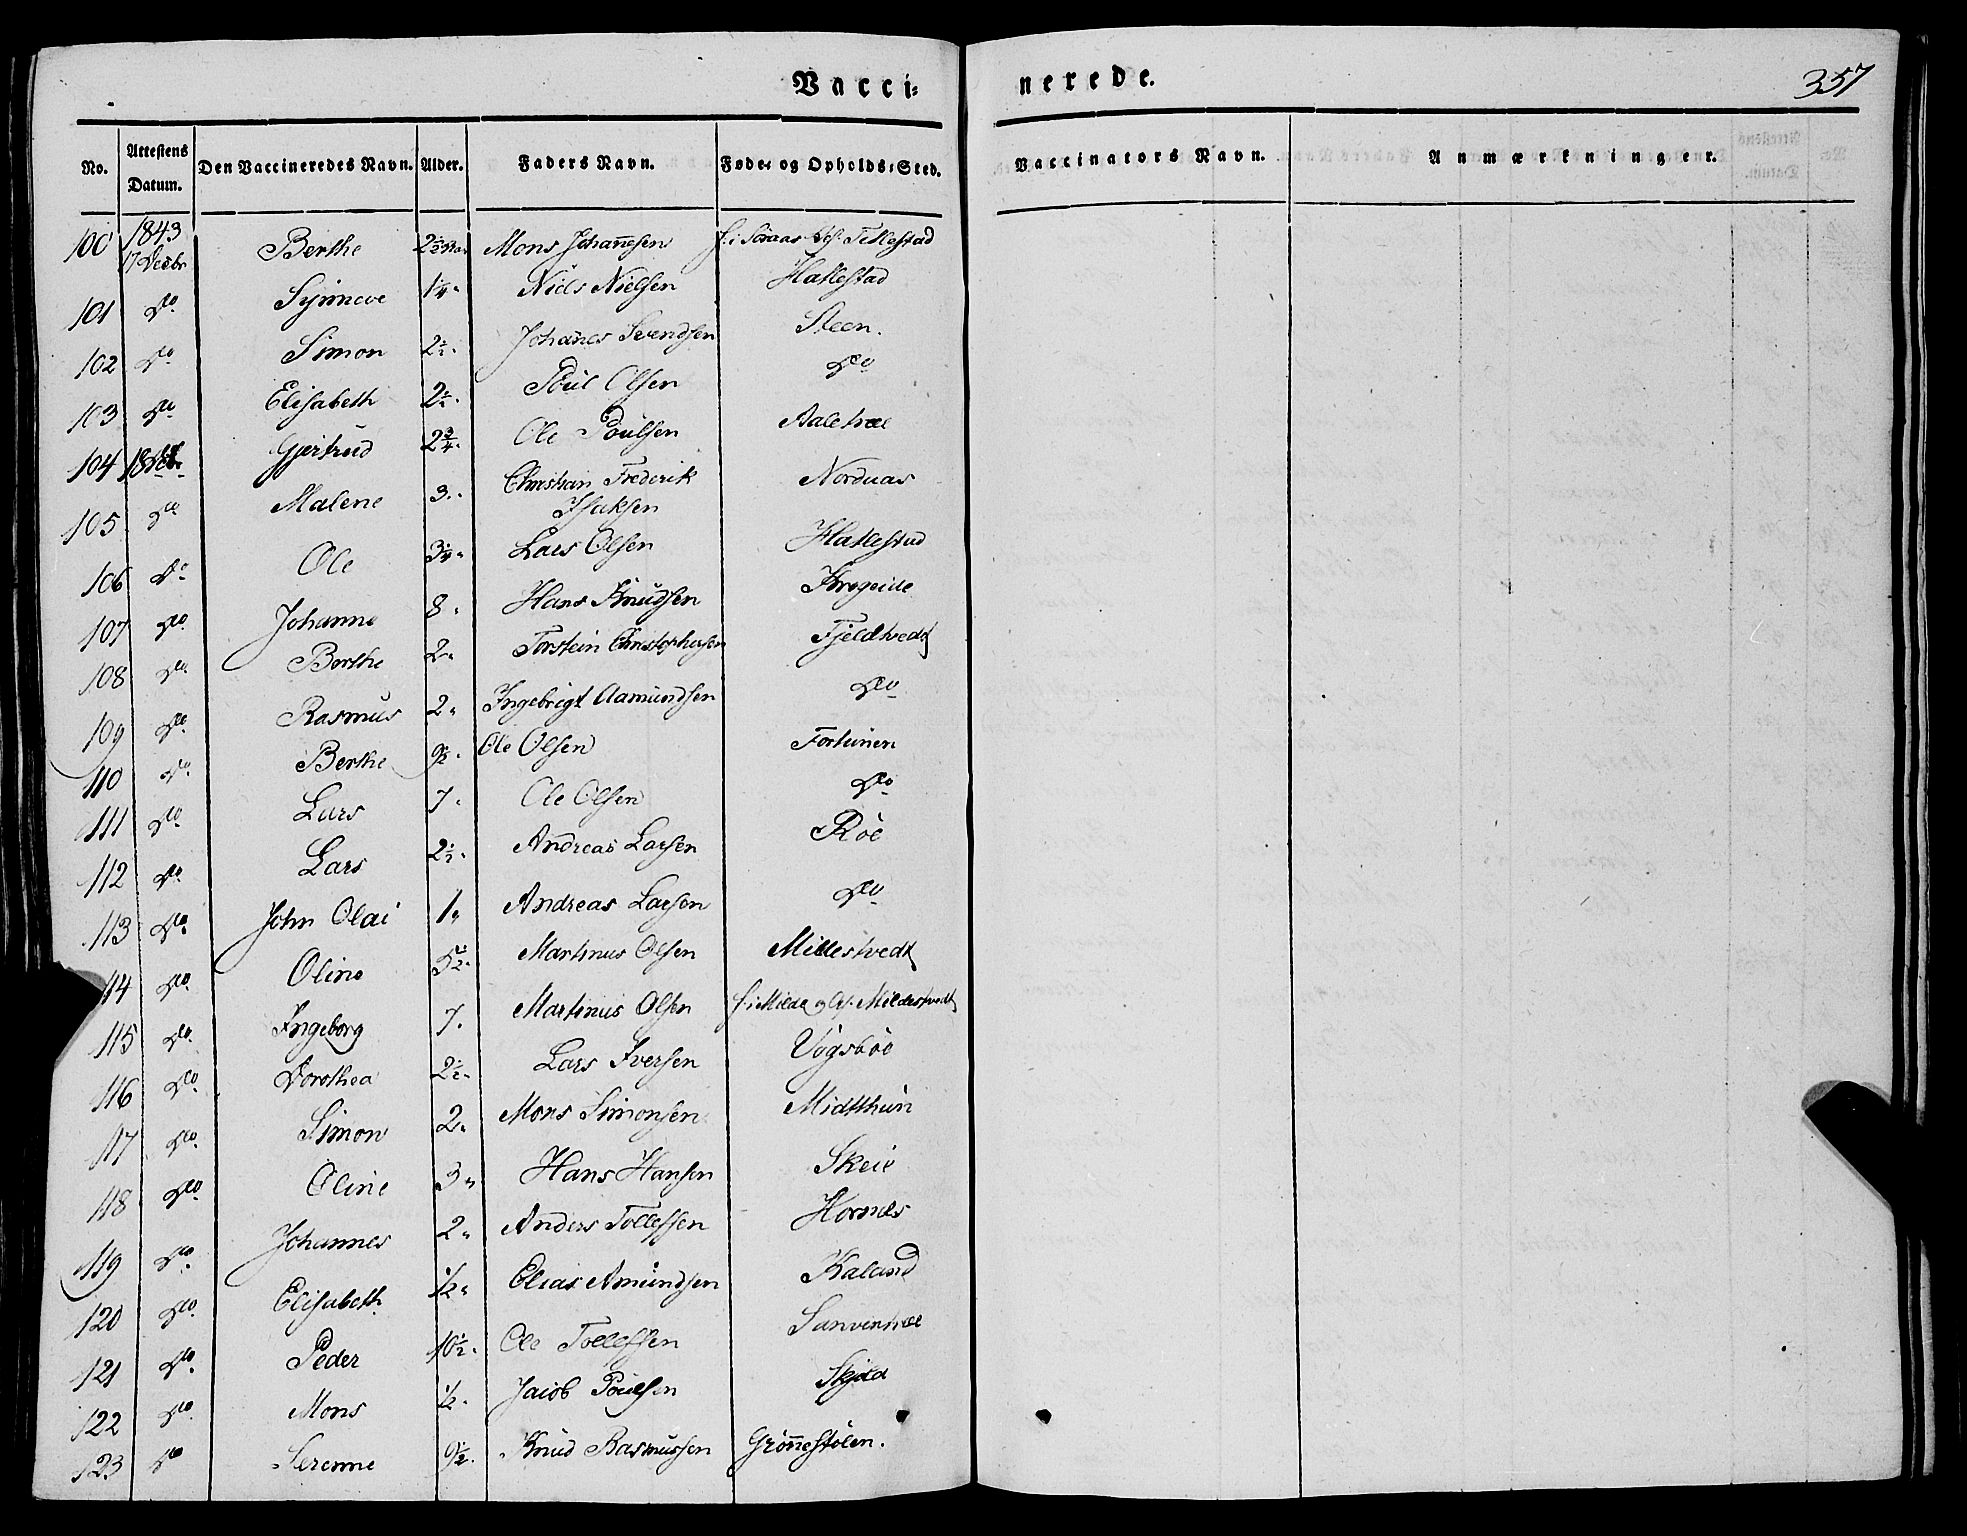 Vacci-
nerede.
357
No. Attestens Datum. Den Vaccineredes Navn. Alder. Faders Navn. Føde- og Opholds-Sted. Vaccinators Navn. Anmærkninger.
100 1843 17 Decbr Berthe 2½ Mons Johannesen f. i Søraas Tellestad
101 Do Synneve 1¼ Niels Nielsen Hatlestad
102 Do Simon 2½ Johanes Svendsen Steen.
103 Do Elisabeth 2½ Poul Olsen Do
104 18 Gjertrud 2¾ Ole Poulsen
105 Do Malene 3 Christian Frederik Isaksen Nordaas
106 Do Ole 3¼ Lars Olsen Hatlestad
107 Do Johanne 8 Hans Knudsen Krogeide
108 Do Berthe 2 Torstein Christophersen Fjeldtvedt
109 Do Rasmus 2 Ingebrigt Aamundsen Do
110 Do Berthe Ole Olsen Fortunen
111 Do Lars 7 Ole Olsen Do
112 Do Lars 2½ Andreas Larsen Röe
113 Do John Olai 1 Andreas Larsen Do
114 Do Oline 5½ Martinus Olsen Mildestvedt
115 Do Ingeborg 7 Martinus Olsen f. i Milde og Op. Mildestvedt
116 Do Dorothea 2½ Lars Iversen Vögsböe
117 Do Simon 2 Mons Simonsen Midtthun
118 Do Oline 3 Hans Hansen Skeie
119 Do Johannes 2 Anders Tollefsen Hornes
120 Do Elisabeth ½ Elias Amundsen Kaland
121 Do Peder 10½ Ole Tollefsen
122 Do Mons ½ Jacob Poulsen Skjold
123 Do Serenne 9½ Knud Rasmussen Grönnestölen.